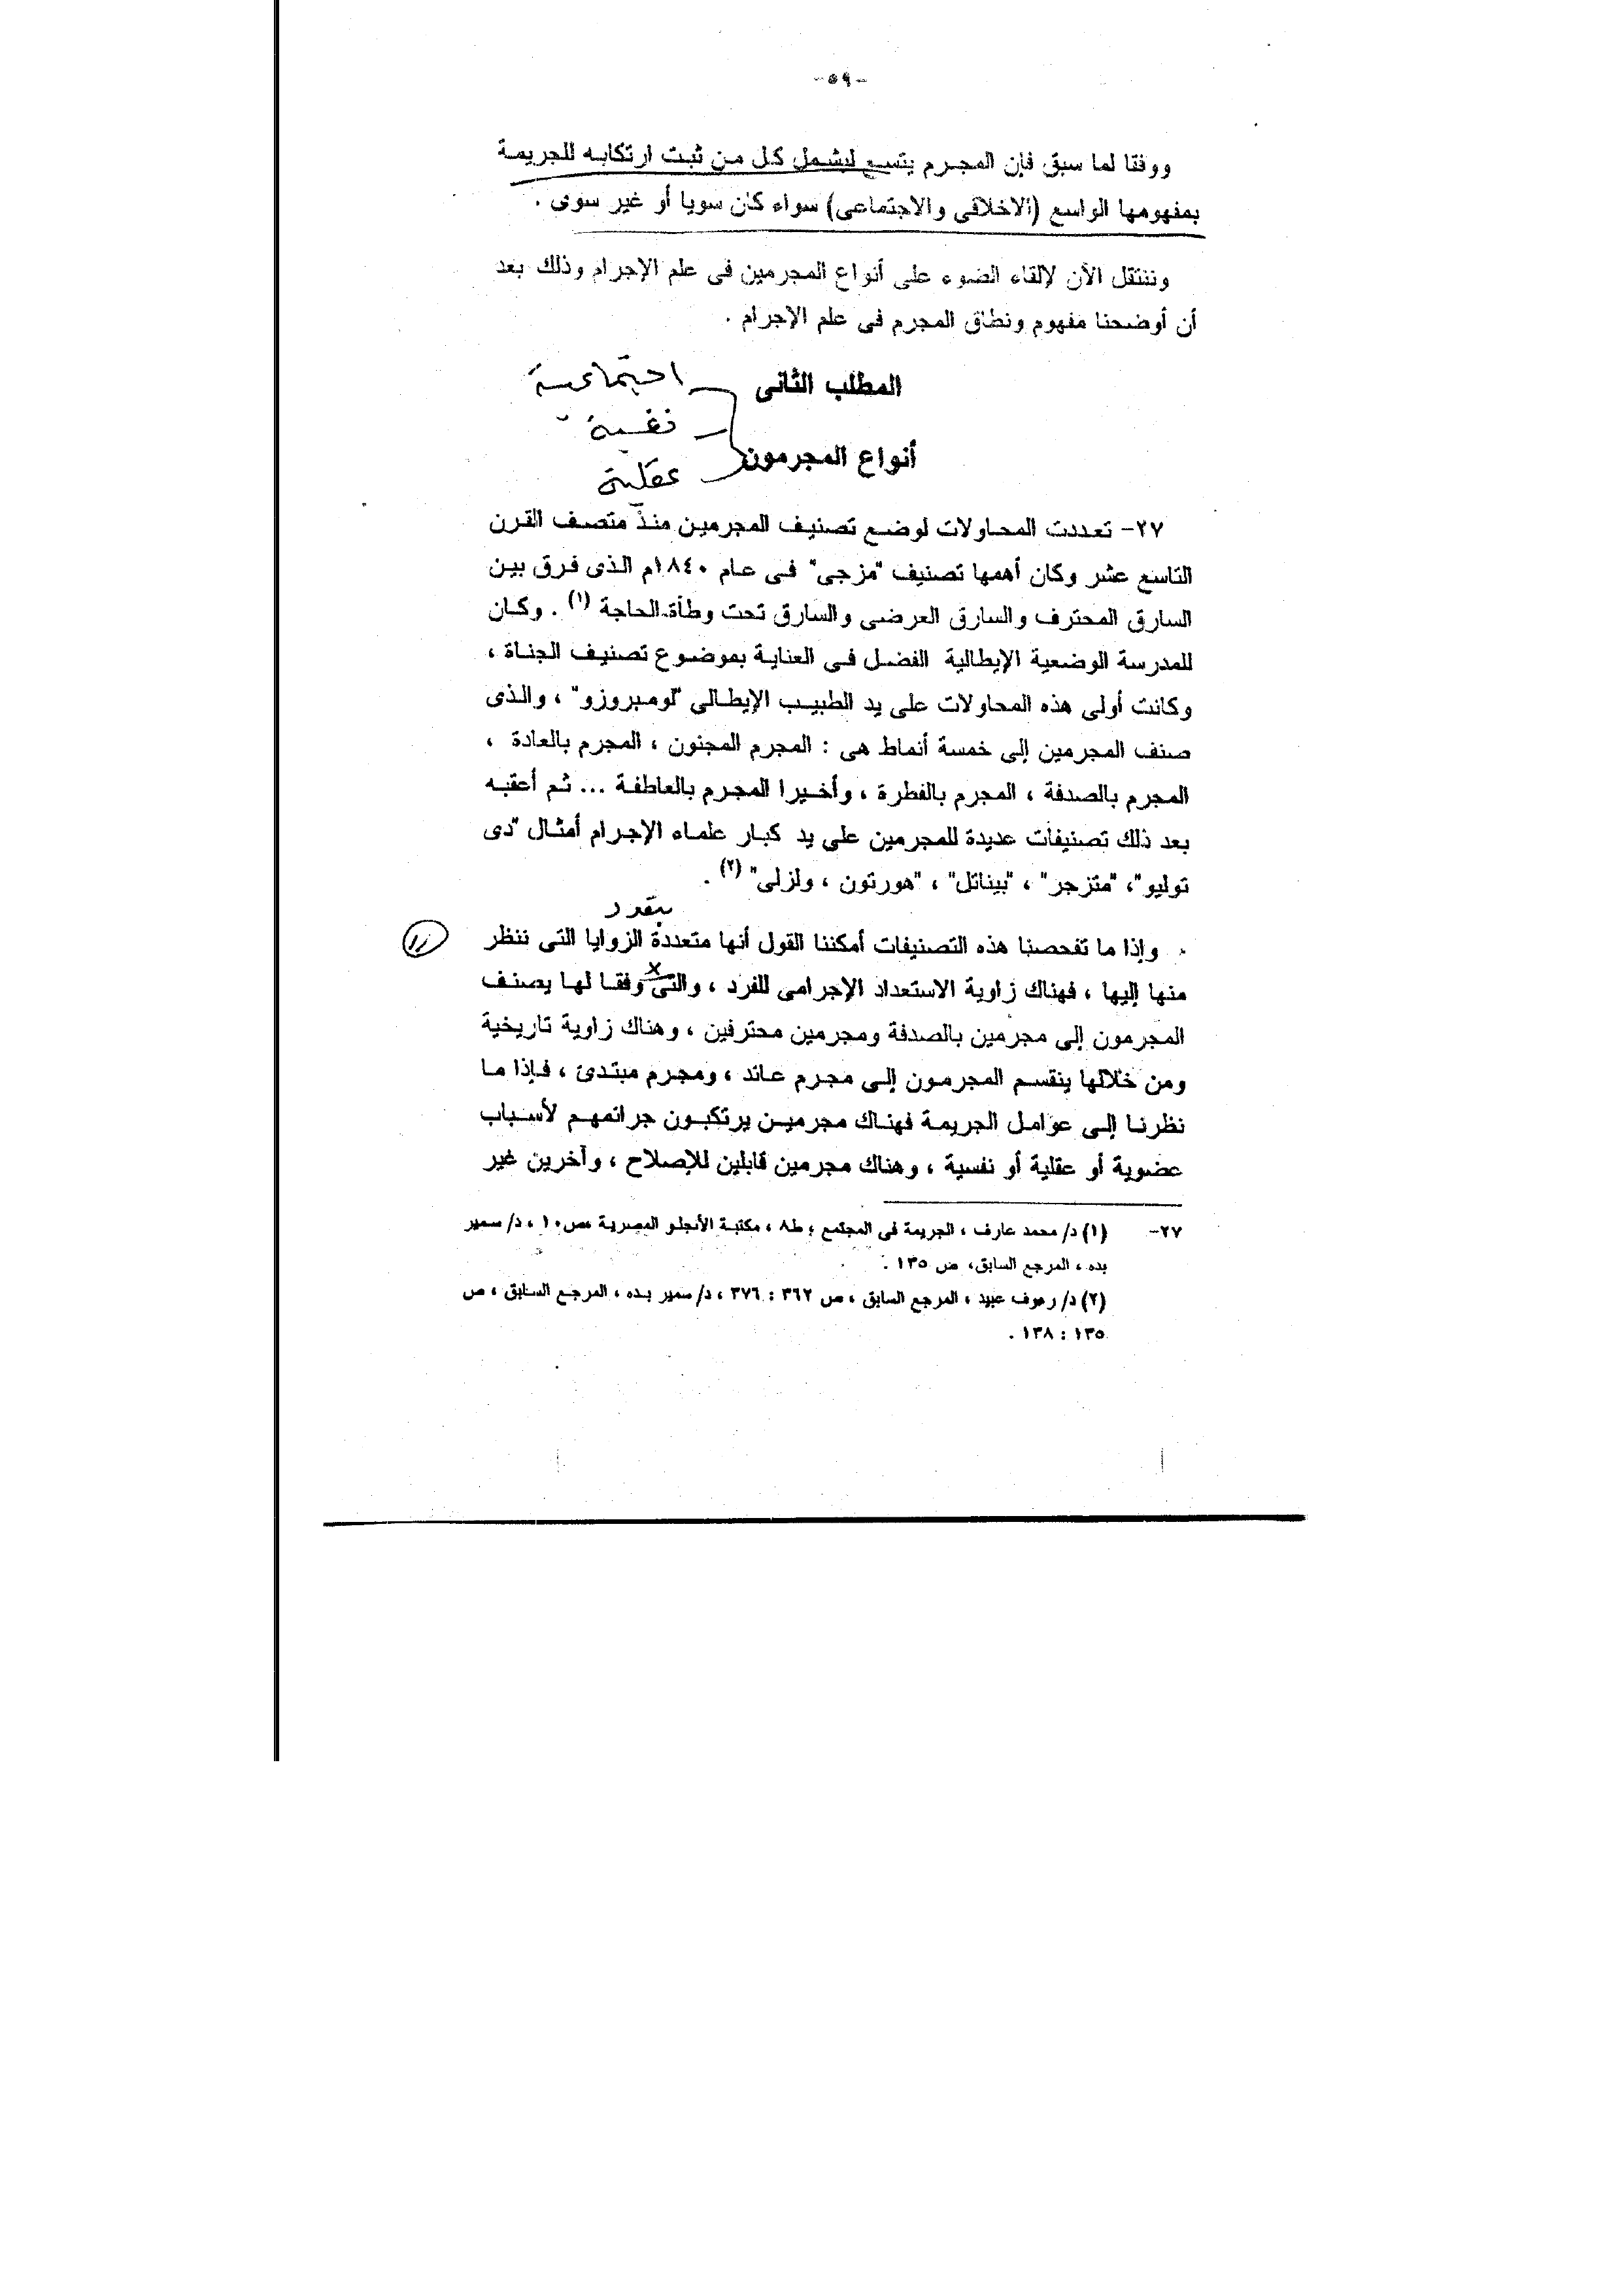 -٥٩-
ووفقا لما سبق فإن المجرم يتسع ليشمل كل من ثبت ارتكابه للجريمة
بمفهومها الواسع (الاخلاقى والاجتماعى) سواء كان سويا أو غير سوى .
وننتقل الآن لإلقاء الضوء على أنواع المجرمين فى علم الإجرام وذلك بعد
أن أوضحنا مفهوم ونطاق المجرم فى علم الإجرام .
المطلب الثانى
اجتماعية
نفسية
أنواع المجرمون
عقلية
٢٧- تعددت المحاولات لوضع تصنيف المجرمين منذ متصف القرن
التاسع عشر وكان أهمها تصنيف "مزجى" فى عام ١٨٤٠م الذى فرق بين
السارق المحترف والسارق العرضى والسارق تحت وطأة الحاجة (١) . وكان
للمدرسة الوضعية الإيطالية الفضل فى العناية بموضوع تصنيف الجناة ،
وكانت أولى هذه المحاولات على يد الطبيب الإيطالى "لومبروزو" ، والذى
صنف المجرمين إلى خمسة أنماط هى : المجرم المجنون ، المجرم بالعادة ،
المجرم بالصدفة ، المجرم بالفطرة ، وأخيرا المجرم بالعاطفة ... ثم أعقبه
بعد ذلك تصنيفات عديدة للمجرمين على يد كبار علماء الإجرام أمثال "دى
توليو"، "متزجر" ، "بيناتل" ، "هورتون ، ولزلى" (٢) .
وإذا ما تفحصنا هذه التصنيفات أمكننا القول أنها متعددة الزوايا التى ننظر
منها إليها ، فهناك زاوية الاستعداد الإجرامى للفرد ، والتى وفقا لها يصنف
المجرمون إلى مجرمين بالصدفة ومجرمين محترفين ، وهناك زاوية تاريخية
ومن خلالها ينقسم المجرمون إلى مجرم عائد ، ومجرم مبتدئ ، فإذا ما
نظرنا إلى عوامل الجريمة فهناك مجرمين يرتكبون جرائمهم لأسباب
عضوية أو عقلية أو نفسية ، وهناك مجرمين قابلين للإصلاح ، وآخرين غير
٢٧- (١) د/ محمد عارف ، الجريمة فى المجتمع ، ط٨ ، مكتبة الأنجلو المصرية ، ص١٠ ، د/ سمير
بده ، المرجع السابق، ص ١٣٥ .
(٢) د/ رءوف عبيد ، المرجع السابق ، ص ٣٦٢ : ٣٧٦ ، د/ سمير بده ، المرجع السابق ، ص
١٣٥ : ١٣٨ .